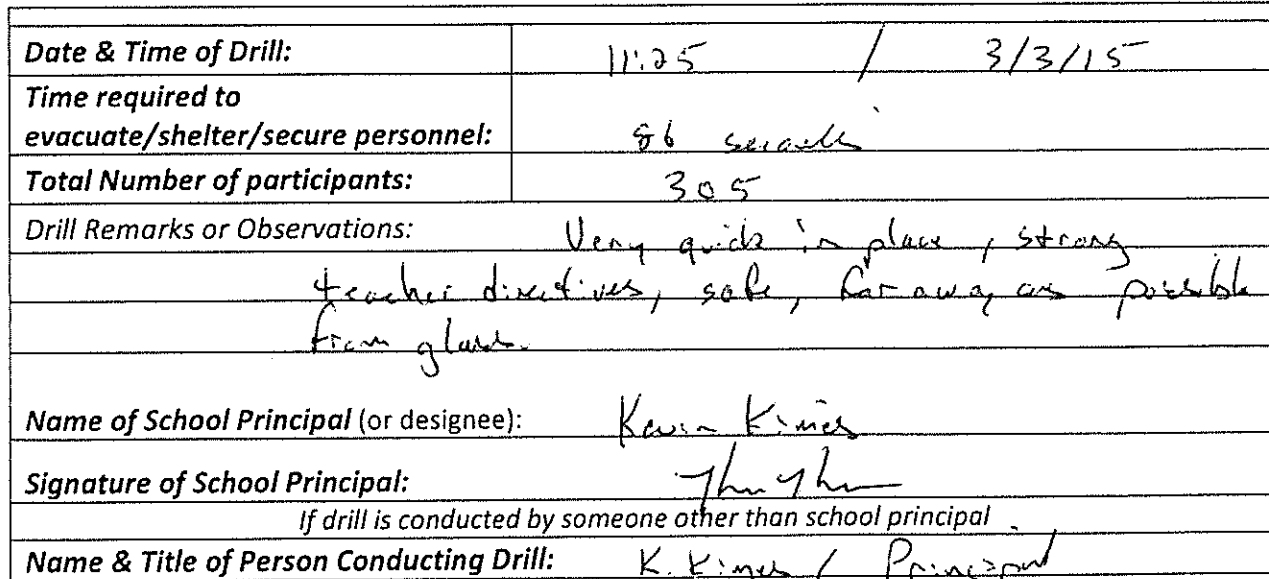 Date & Time of Drill: 11:25 / 3/3/15
Time required to
evacuate/shelter/secure personnel: 86 seconds
Total Number of participants: 305
Drill Remarks or Observations: Very quick in place, strong
teacher directives, safe, far away as possible
from glass.
Name of School Principal (or designee): Kevin Kimes
Signature of School Principal:
If drill is conducted by someone other than school principal
Name & Title of Person Conducting Drill: K. Kimes / Principal